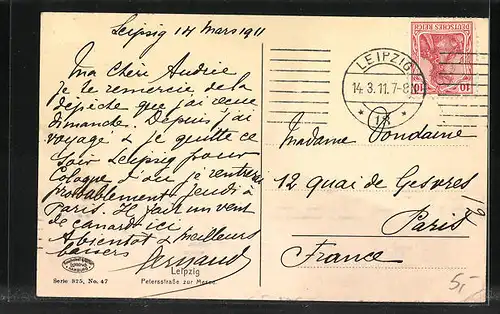 Leipzig 14 Mars 1911
Ma Chère Andrée
je te remercie de la
dépêche que j'ai reçue
dimanche. Depuis j'ai
voyagé & je quitte ce
soir Leipzig pour
Cologne d'où je rentrerai
probablement jeudi à
Paris. Il fait un vent
de canard ici
A bientôt & meilleurs
baisers
Fernand
Serie 925, No. 47
Leipzig
Petersstraße zur Messe.
DEUTSCHES REICH
10 10
LEIPZIG
14.3.11.7-8
Madame Dondaine
12 quai de Gesvres
Paris
France
5,-